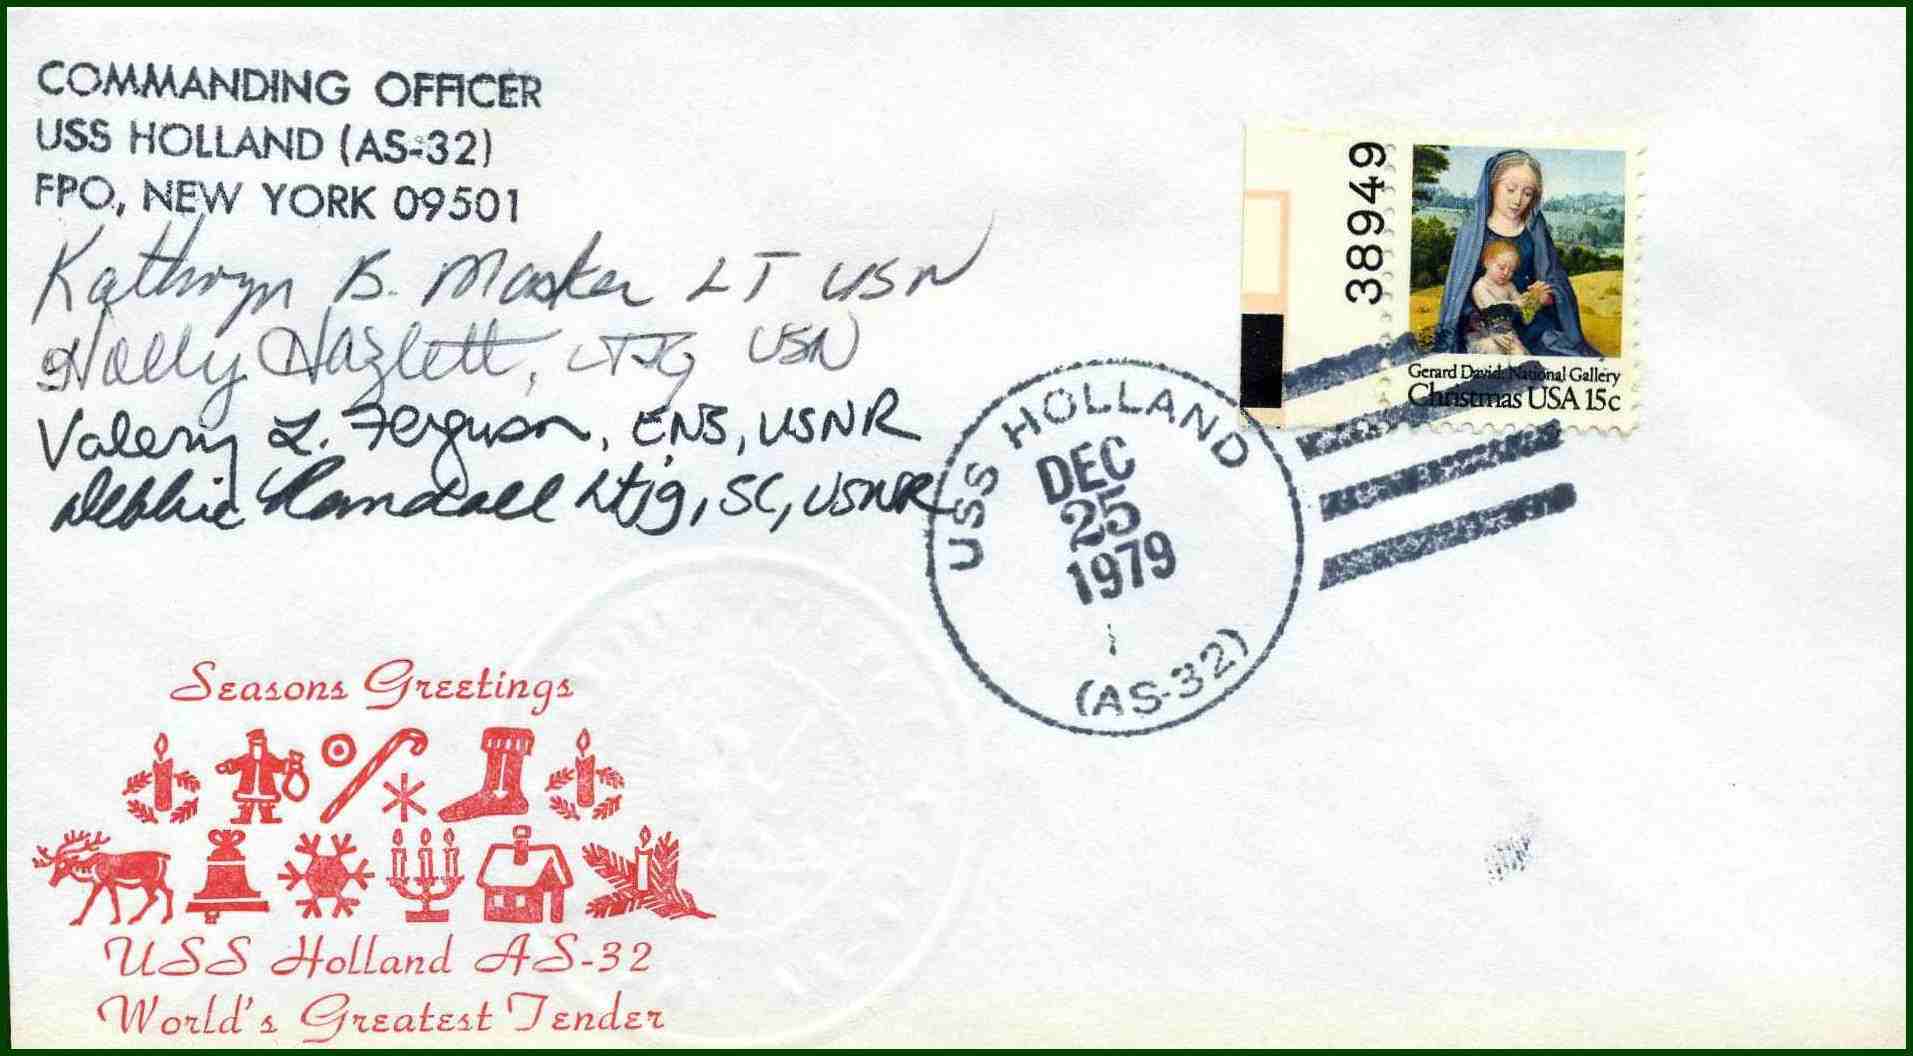 COMMANDING OFFICER
USS HOLLAND (AS-32)
FPO, NEW YORK 09501
Kathryn B. Masker LT USN
Holly Hazlett, LTJG USN
Valery L. Ferguson, ENS, USNR
Debbie Randall Ltjg, SC, USNR
38949
Gerard David: National Gallery
Christmas USA 15c
USS HOLLAND
DEC
25
1979
(AS-32)
Seasons Greetings
USS Holland AS-32
World's Greatest Tender